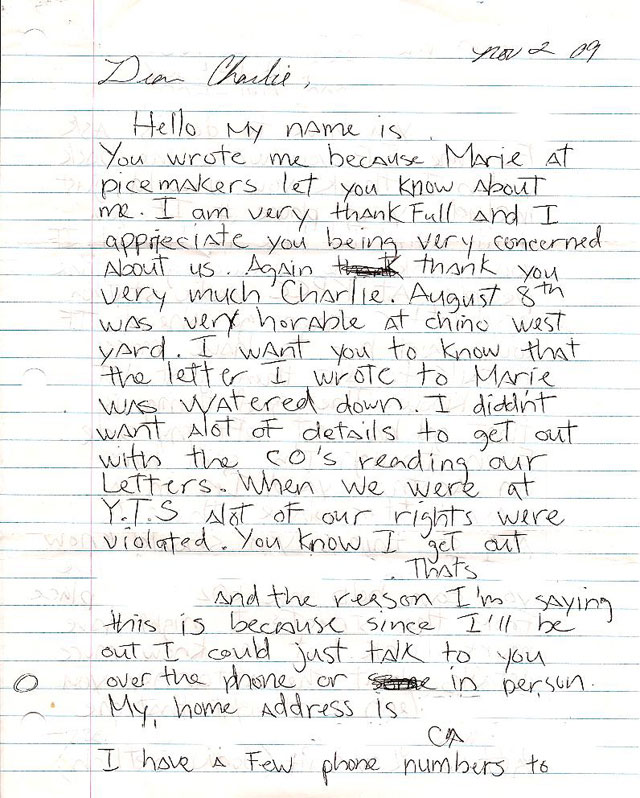 Nov 2 09
Dear Charlie,
Hello My name is
You wrote me because Marie at
picemakers let you know about
me. I am very thankFull and I
apprieciate you being very concerned
About us. Again thank you
very much Charlie. August 8th
was very horable at chino west
yard. I want you to know that
the letter I wrote to Marie
was watered down. I diddn't
want Alot of details to get out
with the CO's reading our
Letters. When we were at
Y.T.S Alot of our rights were
violated. You know I get out
. Thats
And the reason I'm saying
this is because since I'll be
out I could just talk to you
over the phone or in person.
My home Address is
CA
I have a Few phone numbers to